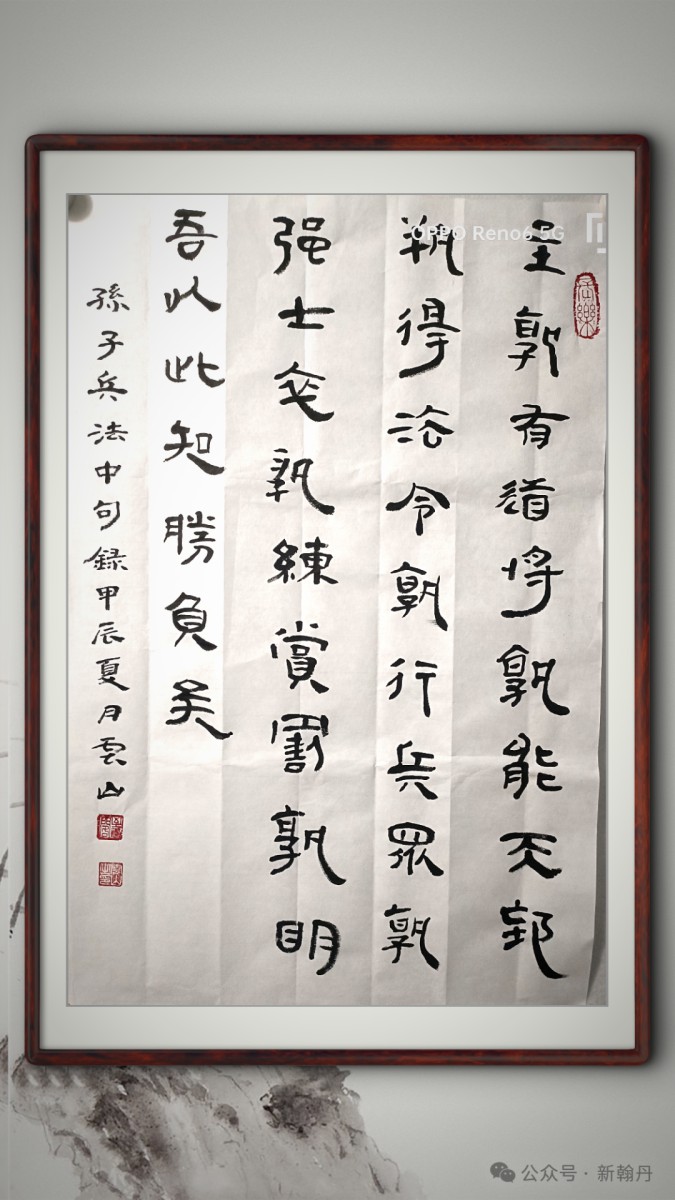 主孰有道将孰能天地
孰得法令孰行兵眾孰
强士卒孰練賞罰孰明
吾以此知勝負矣
孫子兵法中句録甲辰夏月雲山
OPPO Reno6 5G
公众号 · 新翰丹